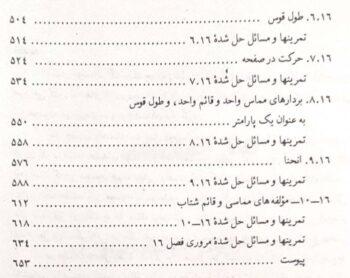 ۶.۱۶. طول قوس ........ ۵۰۴
تمرینها و مسائل حل شدهٔ ۶.۱۶ ........ ۵۱۴
۷.۱۶. حرکت در صفحه ........ ۵۲۴
تمرینها و مسائل حل شدهٔ ۷.۱۶ ........ ۵۳۴
۸.۱۶. بردارهای مماس واحد و قائم واحد، و طول قوس
به عنوان یک پارامتر ........ ۵۵۰
تمرینها و مسائل حل شدهٔ ۸.۱۶ ........ ۵۵۸
۹.۱۶. انحنا ........ ۵۷۶
تمرینها و مسائل حل شدهٔ ۹.۱۶ ........ ۵۸۸
۱۶–۱۰– مؤلفه‌های مماسی و قائم شتاب ........ ۶۱۲
تمرینها و مسائل حل شدهٔ ۱۶–۱۰ ........ ۶۱۸
تمرینها و مسائل حل شدهٔ مروری فصل ۱۶ ........ ۶۳۴
پیوست ........ ۶۵۳